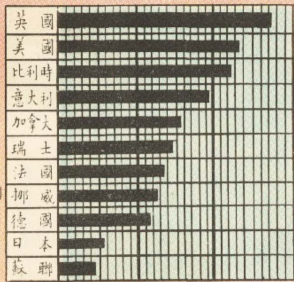 英國
美國
比利時
意大利
加拿大
瑞士
法國
挪威
德國
日本
蘇聯